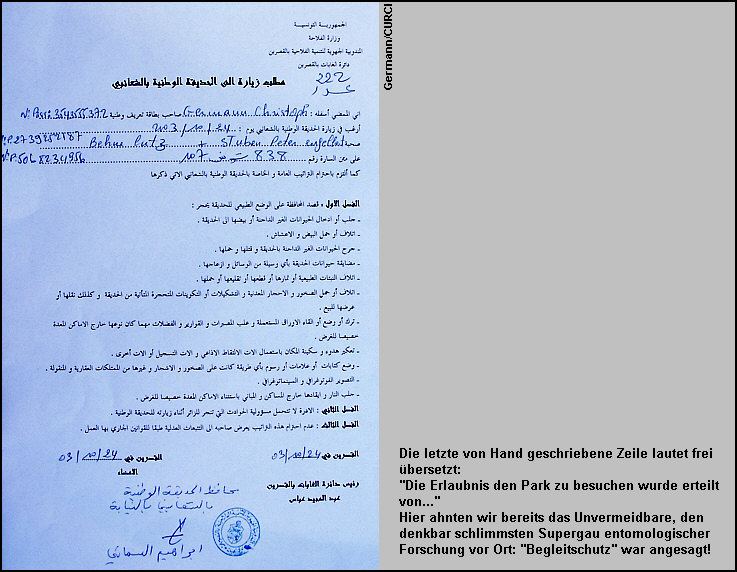 الجمهورية التونسية
وزارة الفلاحة
المندوبية الجهوية للتنمية الفلاحية بالقصرين
دائرة الغابات بالقصرين
مطلب زيارة الى الحديقة الوطنية بالشعانبي
222
اني الممضي أسفله : Germann Christoph صاحب بطاقة تعريف وطنية
أرغب في زيارة الحديقة الوطنية بالشعانبي يوم :
صحبة
على متن السيارة رقم 838 107
كما ألتزم باحترام التراتيب العامة و الخاصة بالحديقة الوطنية بالشعانبي الاتي ذكرها
الفصل الاول : قصد المحافظة على الوضع الطبيعي للحديقة يحجر :
ـ جلب أو ادخال الحيوانات الغير الداجنة أو بيضها الى الحديقة .
ـ اتلاف أو حمل البيض و الاعشاش .
ـ جرح الحيوانات الغير الداجنة بالحديقة و قتلها و حملها .
ـ مضايقة حيوانات الحديقة بأي وسيلة من الوسائل و ازعاجها .
ـ اتلاف النبتات الطبيعية أو ثمارها أو قطعها أو تقليعها أو حملها .
ـ اتلاف أو حمل الصخور و الاحجار المعدنية و التشكيلات أو التكوينات المتحجرة المتأتية من الحديقة و كذلك نقلها أو
عرضها للبيع .
ـ ترك أو وضع أو القاء الاوراق المستعملة و علب المصبرات و القوارير و الفضلات مهما كان نوعها خارج الاماكن المعدة
خصيصا للغرض .
ـ تعكير هدوء و سكينة المكان باستعمال الات الالتقاط الاذاعي و الات التسجيل أو الات أخرى .
ـ وضع كتابات أو علامات أو رسوم بأي طريقة كانت على الصخور و الاشجار و غيرها من الممتلكات العقارية و المنقولة .
ـ التصوير الفوتوغرافي و السينماتوغرافي .
ـ جلب النار و ايقادها خارج المساكن و المباني باستثناء الاماكن المعدة خصيصا للغرض .
الفصل الثاني : الادارة لا تتحمل مسؤولية الحوادث التي تنجر للزائر أثناء زيارته للحديقة الوطنية .
الفصل الثالث : عدم احترام هذه التراتيب يعرض صاحبه الى التتبعات العدلية طبقا للقوانين الجاري بها العمل .
القصرين في 03/10/24
القصرين في 03/10/24
الامضاء
رئيس دائرة الغابات بالقصرين
عبد المجيد عباس
محافظ الحديقة الوطنية
بالشعانبي بالنيابة
Germann/CURCI
Die letzte von Hand geschriebene Zeile lautet frei
übersetzt:
"Die Erlaubnis den Park zu besuchen wurde erteilt
von..."
Hier ahnten wir bereits das Unvermeidbare, den
denkbar schlimmsten Supergau entomologischer
Forschung vor Ort: "Begleitschutz" war angesagt!